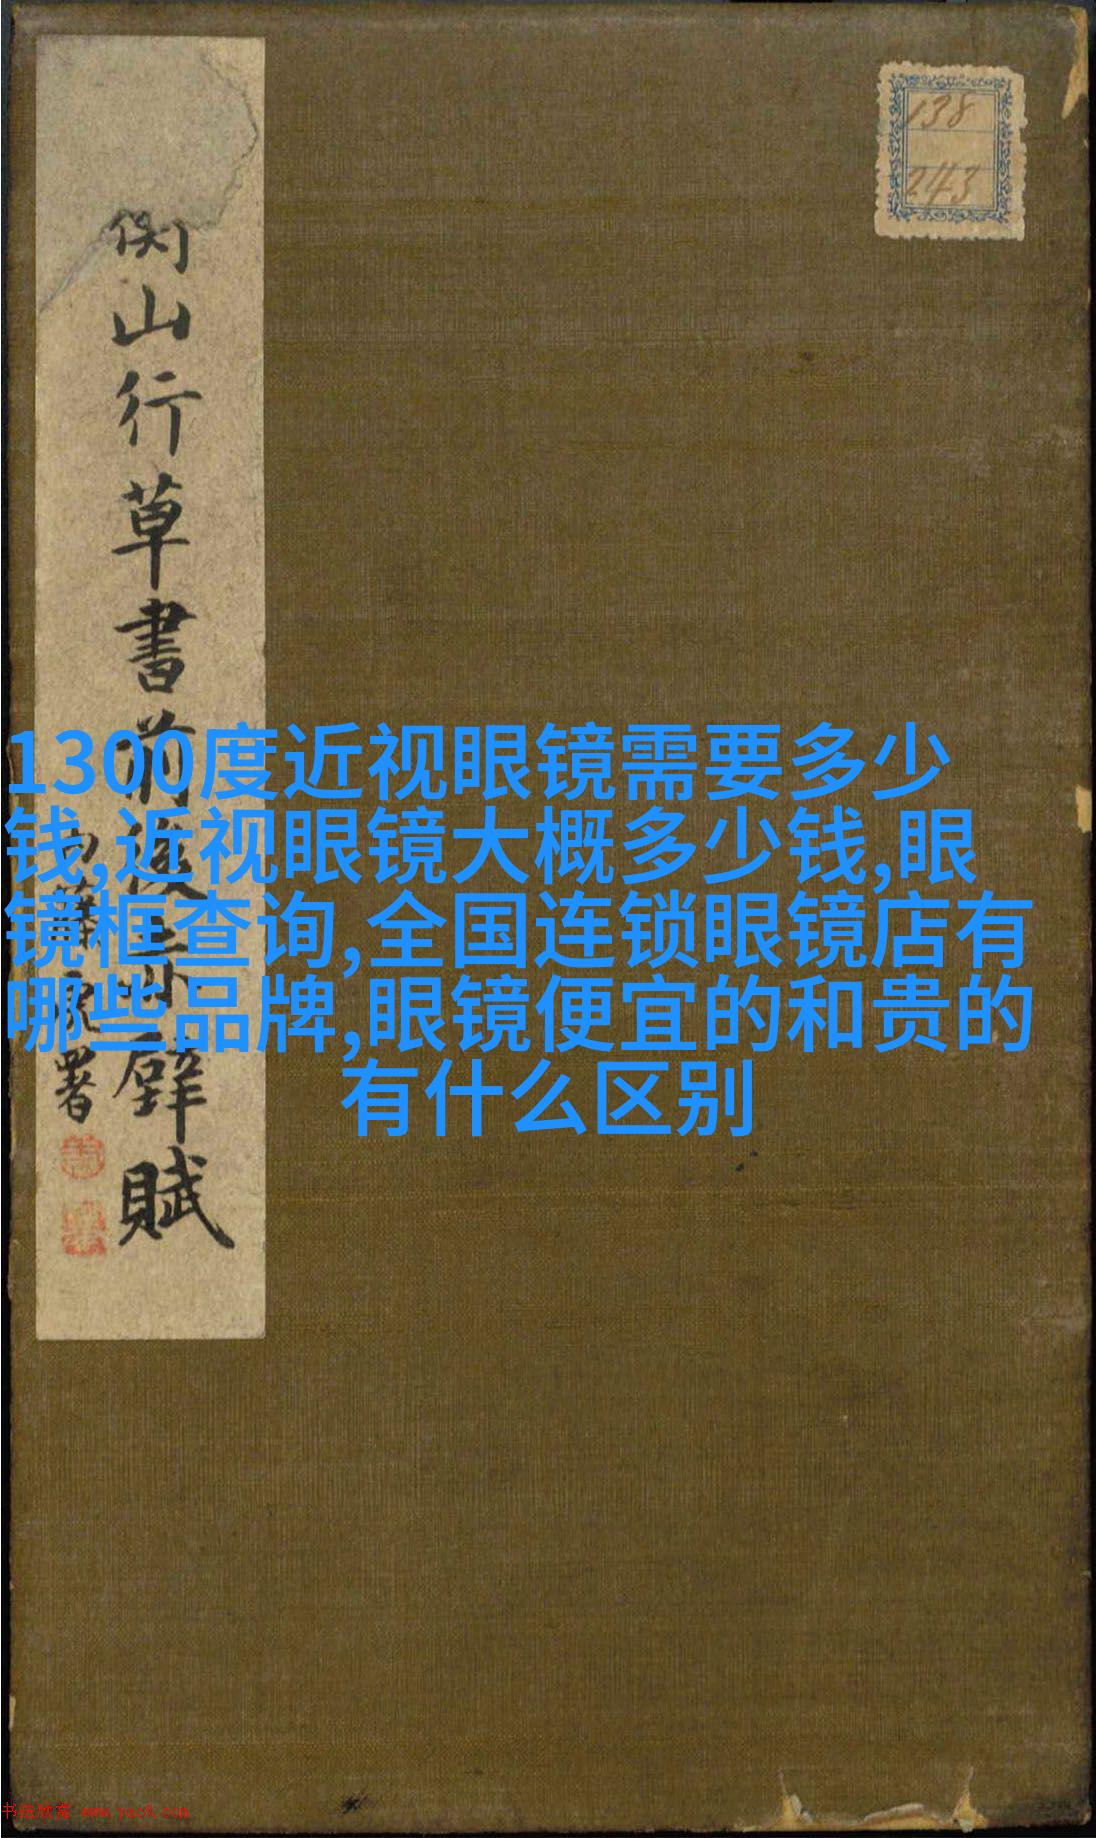 138
243
衡山行草書前後赤壁賦
署
1300度近视眼镜需要多少
钱,近视眼镜大概多少钱,眼
镜框查询,全国连锁眼镜店有
哪些品牌,眼镜便宜的和贵的
有什么区别
书法欣赏 www.yac8.com